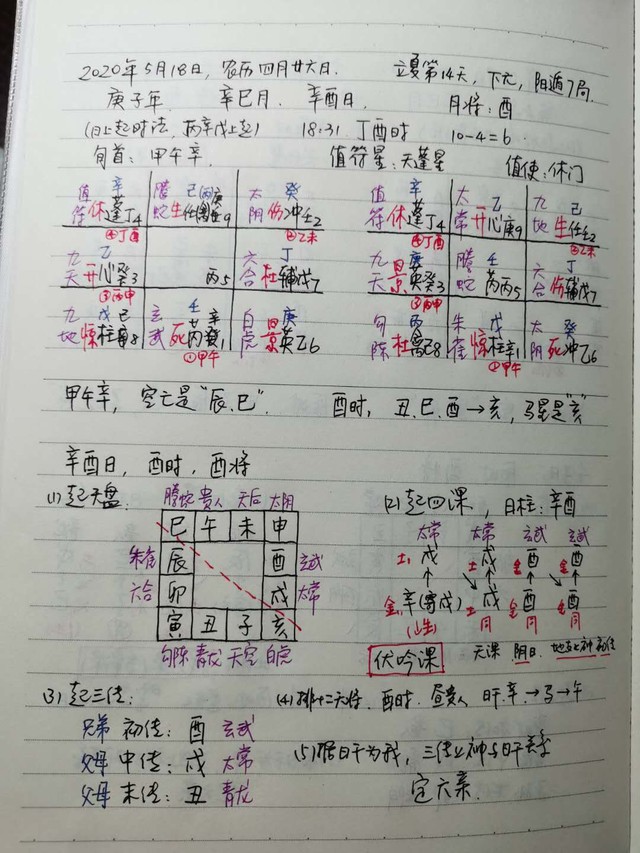 2020年5月18日,农历四月廿六日. 立夏第14天,下元,阳遁7局.
庚子年. 辛巳月. 辛酉日. 月将:酉
(日上起时法,丙辛戊上起) 18:31 丁酉时 10-4=6.
旬首:甲午辛. 值符星:天蓬星 值使:休门
值 辛 螣 己(丙)庚 太 癸 值 辛 太 乙 九 己
符 休 蓬 丁4 蛇 生 任 9 阴 伤 冲 壬2 符 休 蓬 丁4 常 开 心 庚9 地 生 任 壬2
④丁酉 ②乙未 ④丁酉 ②乙未
九 乙 六 丁 九 螣 壬 六 丁
天 开 心 癸3 丙5 合 杜 辅 戊7 天 景 英 癸3 蛇 芮 丙5 合 伤 辅 戊7
③丙申 ③丙申
九 戊己 玄 壬 辛 白 庚 勾 丙 朱 戊 太 癸
地 惊 柱 8 武 死 芮 1 虎 景 英 乙6 陈 杜 己8 雀 惊 柱 辛1 阴 死 冲 乙6
①甲午 ①甲午
甲午辛,空亡是“辰.巳” 酉时,丑.巳.酉→亥,马星是“亥”
辛酉日,酉时,酉将
(1)起天盘: 螣蛇 贵人 天后 太阴 (2)起四课,日柱:辛酉
巳 午 未 申 太常 太常 玄武 玄武
朱雀 辰 酉 玄武 土 戌 土 戌 金 酉 金 酉
六合 卯 戌 太常 金 辛(寄戌) 土 戌 金 酉 金 酉
寅 丑 子 亥 (生) 同 同 同
勾陈 青龙 天空 白虎 伏吟课 无课 阴日.
(3)起三传: (4)排十二天将.酉时.昼贵人 日干:辛→马→午
兄弟 初传:酉 玄武
父母 中传:戌 太常 (5)据日干为我,三传之神与日干关系
父母 末传:丑 青龙 定六亲.